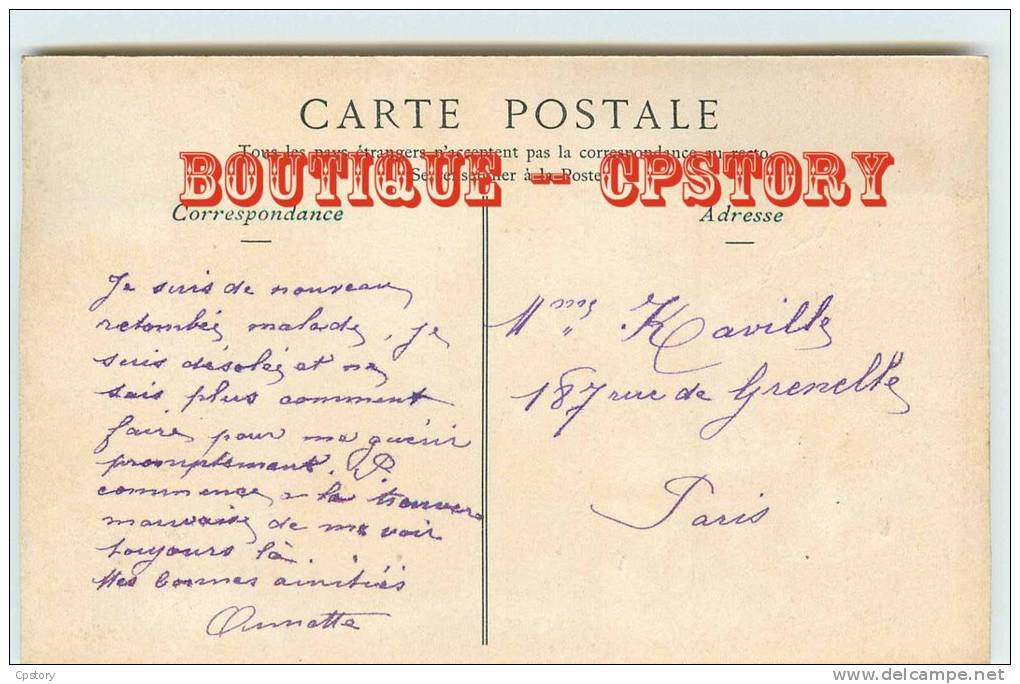 CARTE POSTALE
Tous les pays étrangers n'acceptent pas la correspondance au recto
Se renseigner à la Poste
BOUTIQUE -- CPSTORY
Correspondance
Je suis de nouveau
retombée malade. Je
suis désolée et ne
sais plus comment
faire pour me guérir
promptement. P.
commence a la trouver
mauvaise de me voir
toujours là.
Mes bonnes amitiés
Annette
Adresse
Mme Kaville
187 rue de Grenelle
Paris
Cpstory
www.delcampe.net